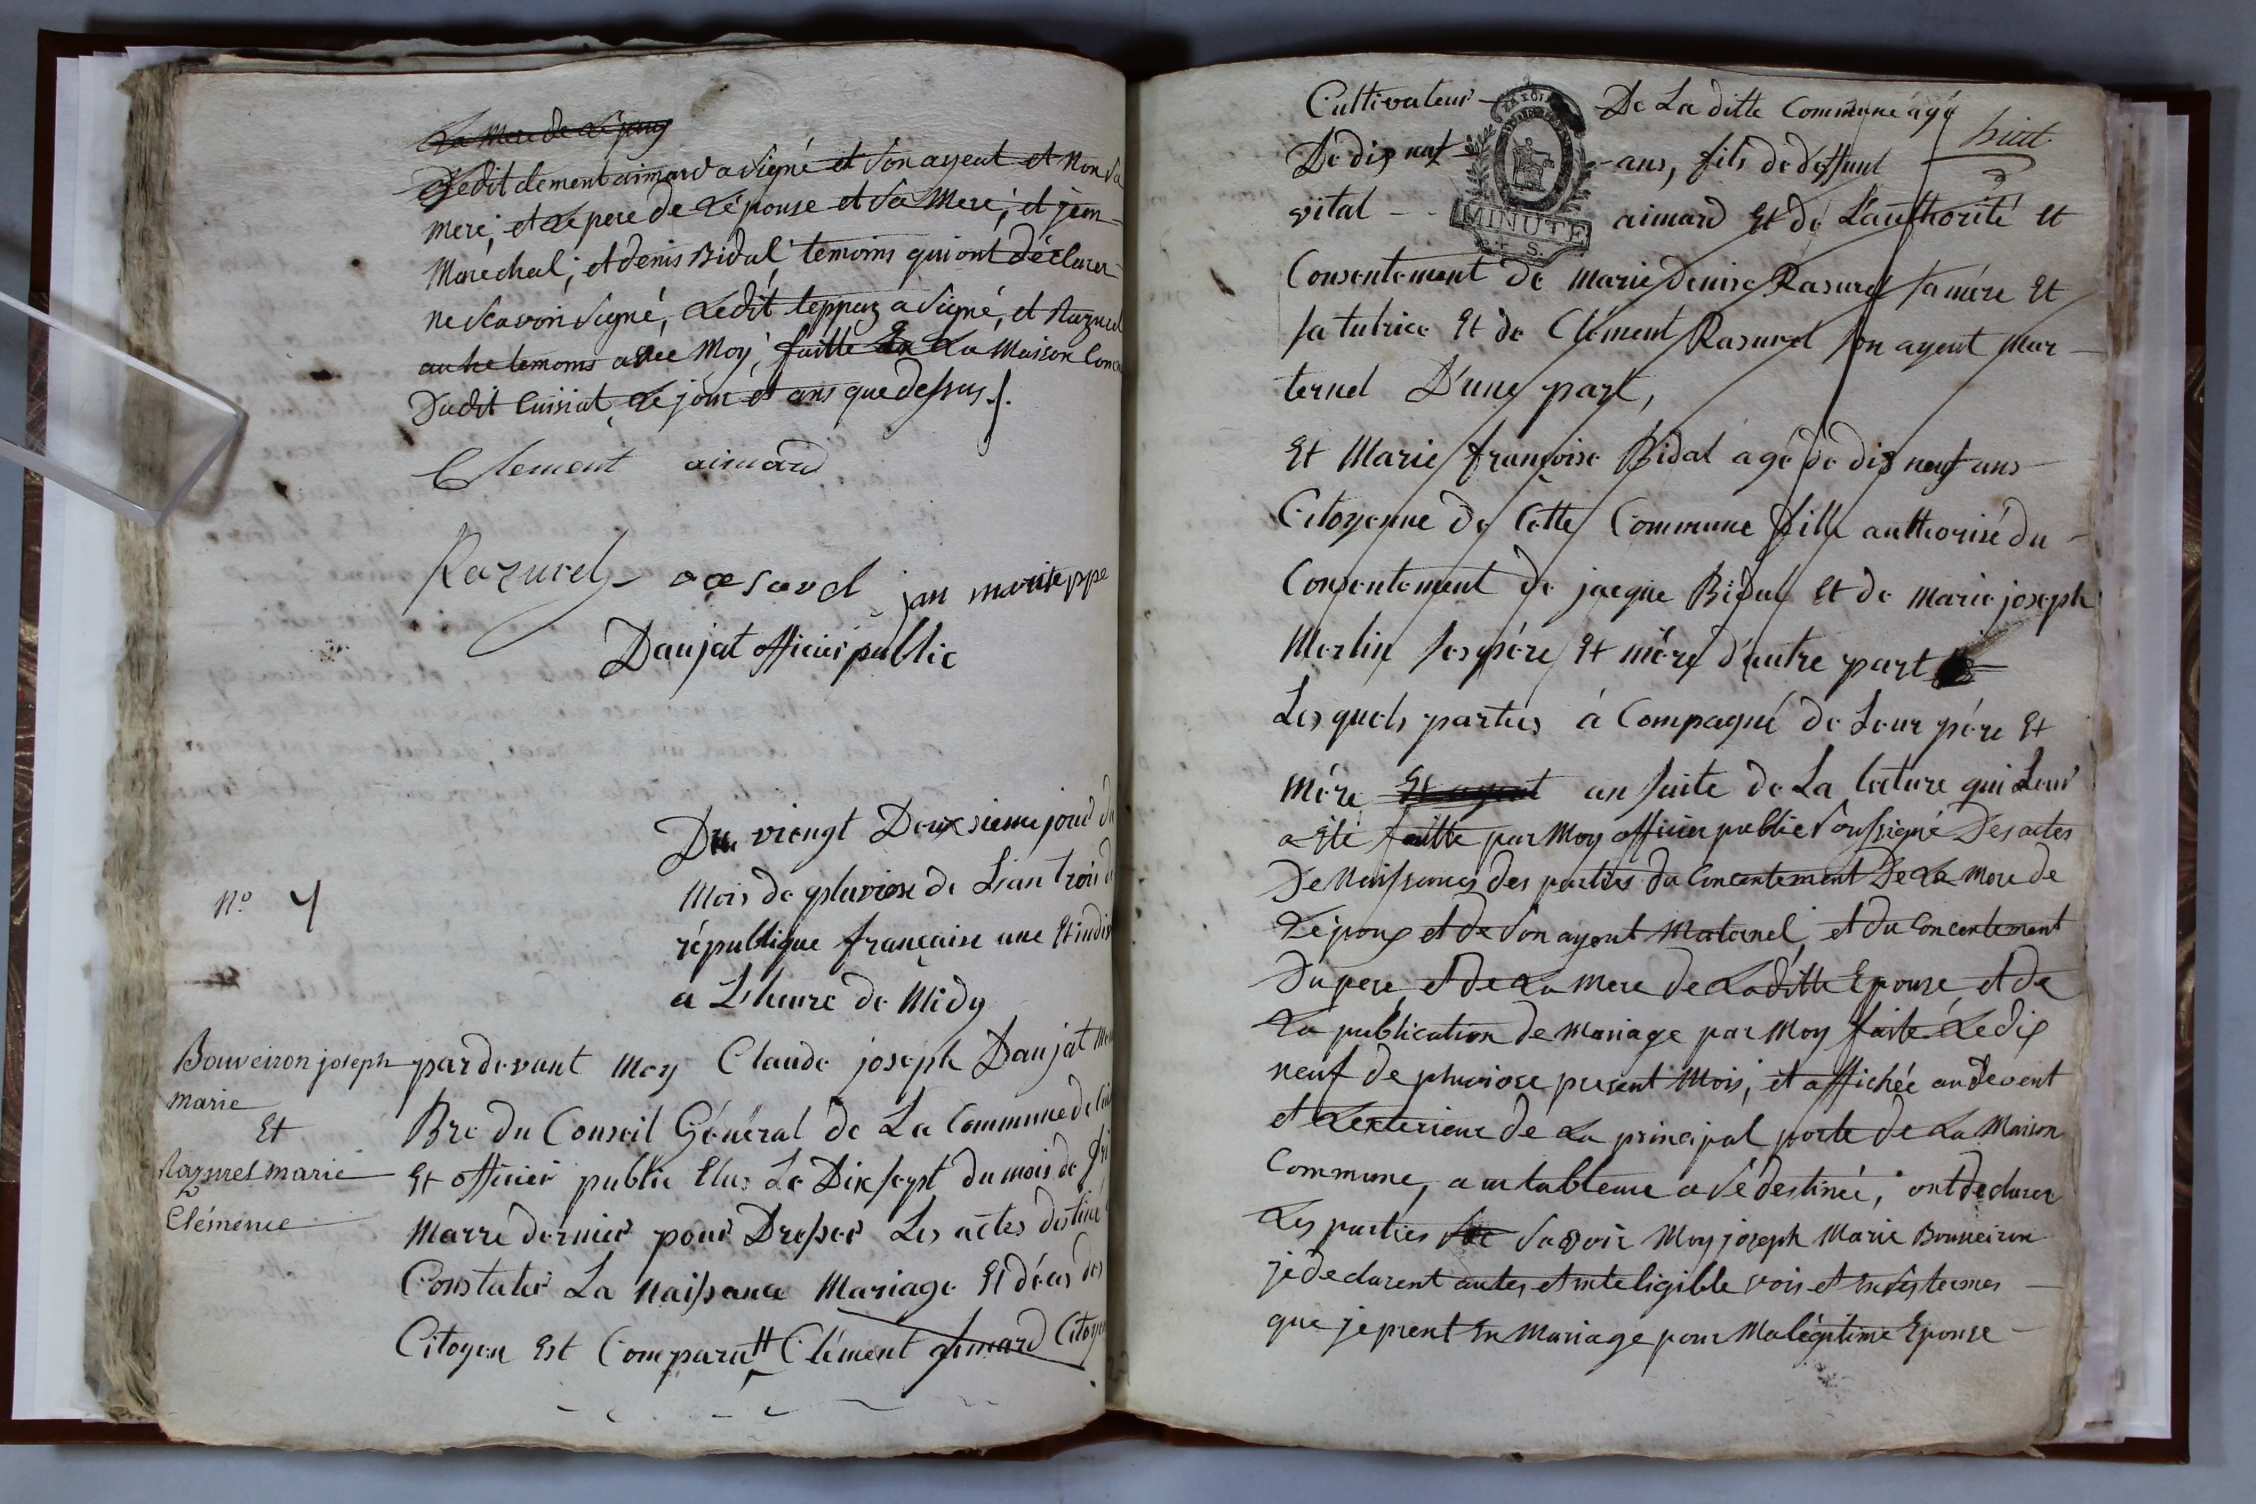 La Mere de Lépoux
Ledit clement aimard a signé et son ayeul et Non sa
mere, et Le pere de Lépouse et sa Mere, et jean
Maréchal, et denis Bidal temoins qui ont déclarer
ne scavoir signé, Ledit teppaz a signé, et Razurel
autre temoins avec Moy, faitte En La Maison Com
Dudit Cuisiat, Le jour et ans que dessus ./.
Clement aimard
Razurel rasavel jan marie teppe
Daujat officier public
Du viengt Deuxsieme jour du
N.º 4
Mois de pluviose de L'an trois de
république française une Et indiv
a L'heure de Midy
Bouveiron joseph
marie
Et
Razurel marie
Clémence
pardevant Moy Claude joseph Daujat Mem
Bre du Conseil Général de La Commune de Cui
Et officier public Elus Le Dix sept du mois de fri
Marre dernier pour Dresser Les actes destiné
Constater La Naissance Mariage Et décés des
Citoyen Est Comparu Clément Aimard Citoyen
Cultivateur De La ditte Commune agé
De dix neuf ans, fils de deffunt
MINUTE
vital aimard Et de L'authorité Et
Consentement de marie denise Rasurel sa mére Et
sa tutrice Et de Clément Rasurel son ayeul Mar
ternel D'une part,
Et Marie françoise Bidal agé de dix neuf ans
Citoyenne de Cette Commune fille authorisé du
Consentement de jacque Bidal Et de marie joseph
Merlin ses pére Et mére d'autre part
Les quels parties à Compagné de Leur pére Et
Mére Et ayeul an suite de La lecture qui Leur
a Eté faitte par Moy officier public soussigné Des actes
De Naissances des parties du Concentement De La Mere de
Lépoux et de son ayeul Maternel, et du Concentement
Du pere, et De La Mere de Laditte Epouse, et de
La publication de Mariage par Moy faite Le dix
neuf de pluviose present Mois, et affichée au devent
et Lexterieur de La principal porte de La Maison
Commune, au tableau a se destinée, ont declarer
Les parties savoir Moy joseph Marie Bouveiron
je declarent autes et inteligible vois et En ses termes
que je prent En Mariage pour Ma légitime Epouse